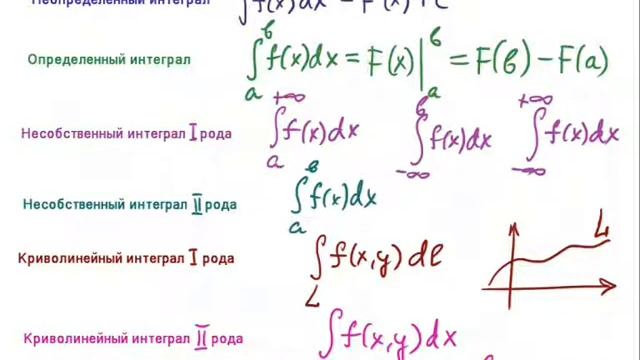 Неопределенный интеграл ∫f(x)dx = F(x)+C
Определенный интеграл ∫ₐᵇ f(x)dx = F(x)|ₐᵇ = F(b) – F(a)
Несобственный интеграл I рода ∫ₐ⁺∞ f(x)dx ∫₋∞ᵇ f(x)dx ∫₋∞⁺∞ f(x)dx
Несобственный интеграл II рода ∫ₐᵇ f(x)dx
Криволинейный интеграл I рода ∫_L f(x,y)dl L
Криволинейный интеграл II рода ∫f(x,y)dx